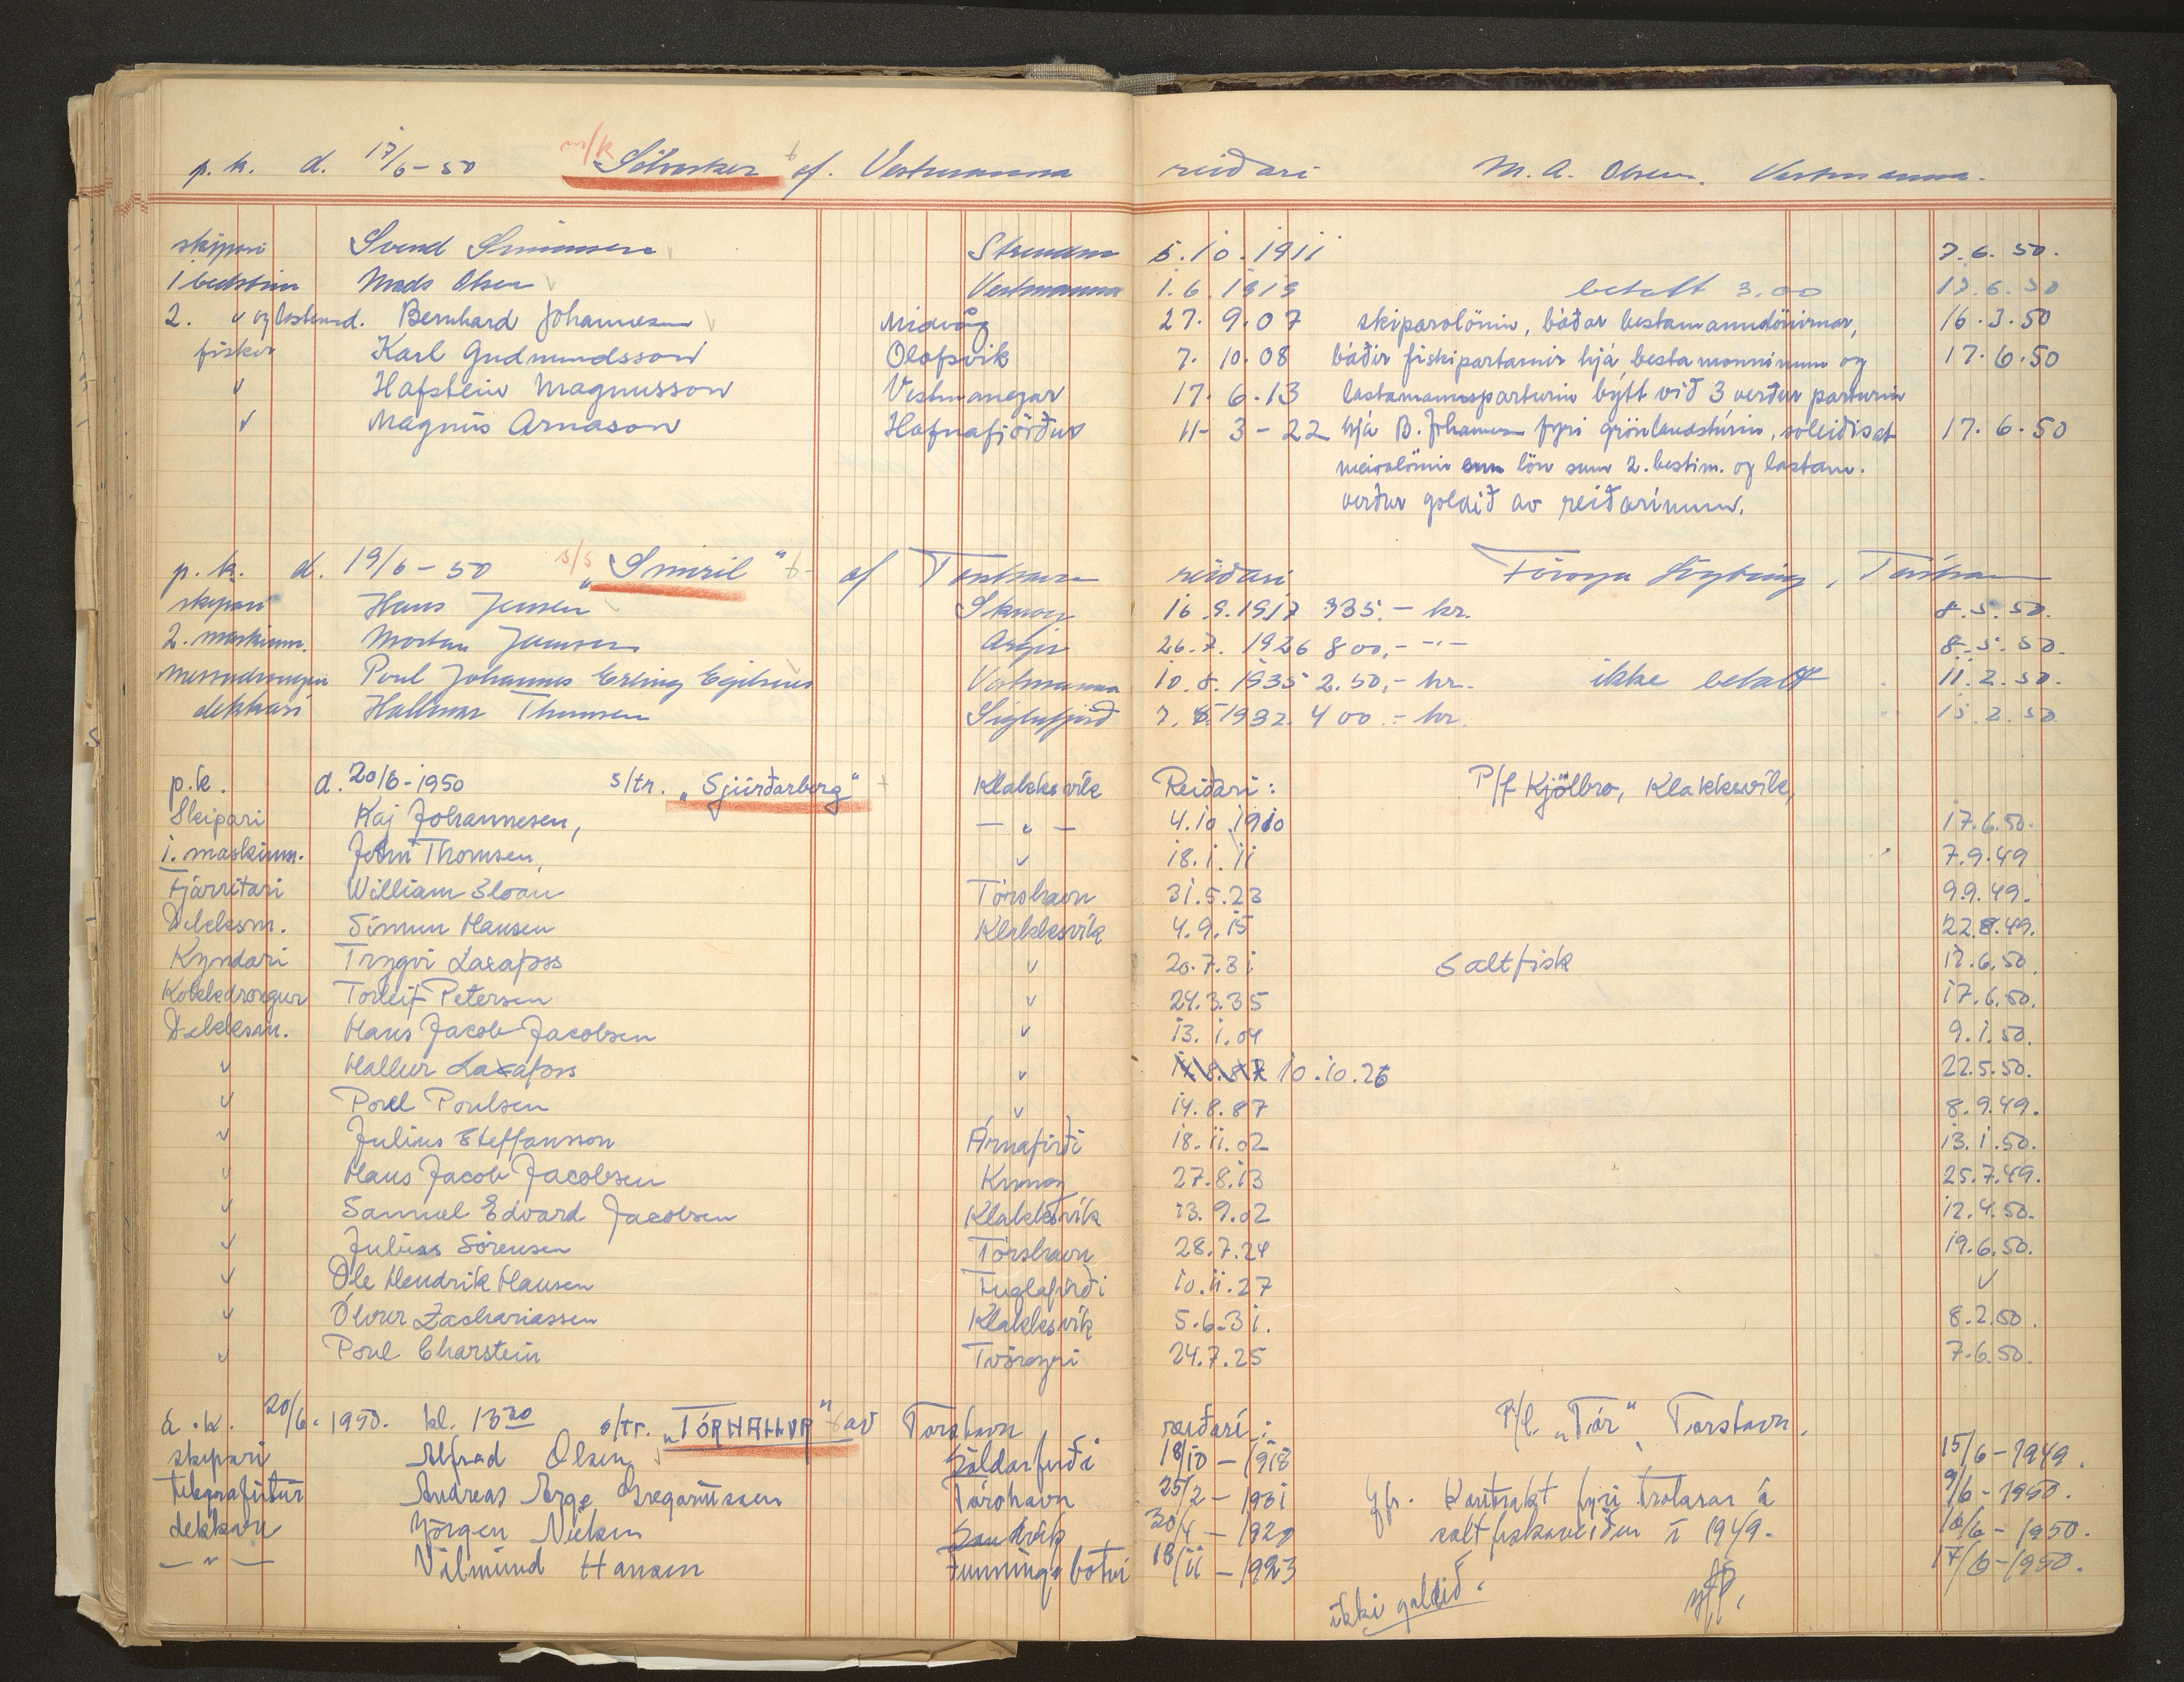 p. k. d. 17/6-50 m/k "Sólvasker" af. Vestmanna reiðari M. A. Olsen. Vestmanna.
skipari Svend Simonsen Strendur 5.10.1911 7.6.50.
1 bestim Mads Olsen Vestmanna 1.6.1919 betalt 3.00 17.6.50
2. " og lastamd. Bernhard Johannesen Miðvág 27. 9.07 skiparalönin, báðar bestamannalönirnar, 16.3.50
fiskur Karl Gudmundsson Olafsvik 7. 10.08 báðir fiskipartarnir hjá bestamonninum og 17.6.50
" Hafstein Magnusson Vestmanejar 17. 6.13 lastamansparturin býtt við 3 verður parturin
" Magnús Arnason Hafnafjörður 11-3-22 hjá B. Johannesen fyri grönlandstúrin, soleiðis at 17.6.50
meirolönin enn lön sum 2. bestim. og lastam.
verður goldið av reiðarinum.
p. k. d. 19/6-50 s/s "Smiril" af Torshavn reiðari Föroya Lögting, Tórshavn
skipari Hans Jensen Skuoy 16.9.1917 935.- kr. 8.5.50.
2. maskinm. Morten Joensen Argir 26.7.1926 800,- -"- 8.5.50.
messudrongur Poul Johannes Erling Egilsnes Vestmanna 10.8.1935 2.50,- kr. ikke betalt 11.2.50.
dekkari Hallmar Thomsen Siglufjørð 7.8.1932 400.- kr. 15.2.50
p.k. d. 20/6-1950 s/tr. "Sjúrðarberg" Klakksvík Reiðari: P/f Kjölbro, Klakksvík,
Skipari Kaj Johannesen, -"- 4.10.1910 17.6.50.
1. maskinm. John Thomsen, " 18.1.11 7.9.49
Fjarritari William Sloan Tórshavn 31.5.23 9.9.49.
Dekksm. Símun Hansen Klakksvík 4.9.15 22.8.49.
Kyndari Trygvi Laxafoss " 20.7.31 Saltfisk 17.6.50.
Kokkedrongur Torleif Petersen " 24.3.35 17.6.50.
Dekksm. Hans Jacob Jacobsen " 13.1.04 9.1.50.
" Hallur Laxafoss " 10.10.26 22.5.50.
" Poul Poulsen " 14.8.87 8.9.49.
" Julius Steffansson Árnafirði 18.11.02 13.1.50.
" Hans Jacob Jacobsen Kunoy 27.8.13 25.7.49.
" Samuel Edvard Jacobsen Klakksvík 13.9.02 12.4.50.
" Julius Sörensen Tórshavn 28.7.24 19.6.50.
" Ole Hendrik Hansen Fuglafirði 10.11.27 "
" Ólvur Zachariassen Klakksvík 5.6.31. 8.2.50.
" Poul Charstein Tvöroyri 24.7.25 7.6.50.
á.k. 20/6-1950. kl. 13 20 s/tr. "TÓRHALLUR" av Torshavn reiðari: P/f. "Tór" Torshavn.
skipari Alfred Olsen Söldarfirði 18/10-1918 15/6-1949.
telegrafistur Andreas Arge Gregoriussen Tórshavn 25/2-1931 Yfr. Kontrakt fyri trolarar á 9/6-1950.
dekkari Jörgen Nielsen Sandvík 30/4-1929 saltfiskaveiður í 1949. 16/6-1950.
-"- Vilmund Hansen Funningsbotni 18/11-1923 17/6-1950.
ikki goldið.